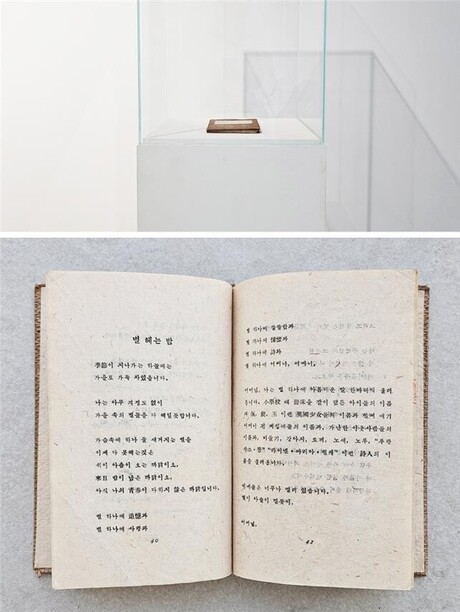 별 헤는 밤
季節이 지나가는 하늘에는
가을로 가득 차있습니다.
나는 아무 걱정도 없이
가을 속의 별들을 다 헤일듯합니다.
가슴속에 하나 둘 새겨지는 별을
이제 다 못헤는것은
쉬이 아츰이 오는 까닭이오,
來日 밤이 남은 까닭이오,
아직 나의 靑春이 다하지 않은 까닭입니다.
별 하나에 追憶과
별 하나에 사랑과
40
별 하나에 쓸쓸함과
별 하나에 憧憬과
별 하나에 詩와
별 하나에 어머니, 어머니,
어머님, 나는 별 하나에 아름다운 말 한마디씩 불러
봅니다. 小學校 때 冊床을 같이 했든 아이들의 이름
과 佩, 鏡, 玉 이런 異國少女들의 이름과 벌써 애기
어머니 된 계집애들의 이름과, 가난한 이웃사람들의
이름과, 비둘기, 강아지, 토끼, 노새, 노루, 「푸랑
시쓰・쨤」 「라이넬・마리아・릴케」 이런 詩人의 이
름을 불러봅니다.
이네들은 너무나 멀리 있습니다.
별이 아슬이 멀듯이,
어머님,